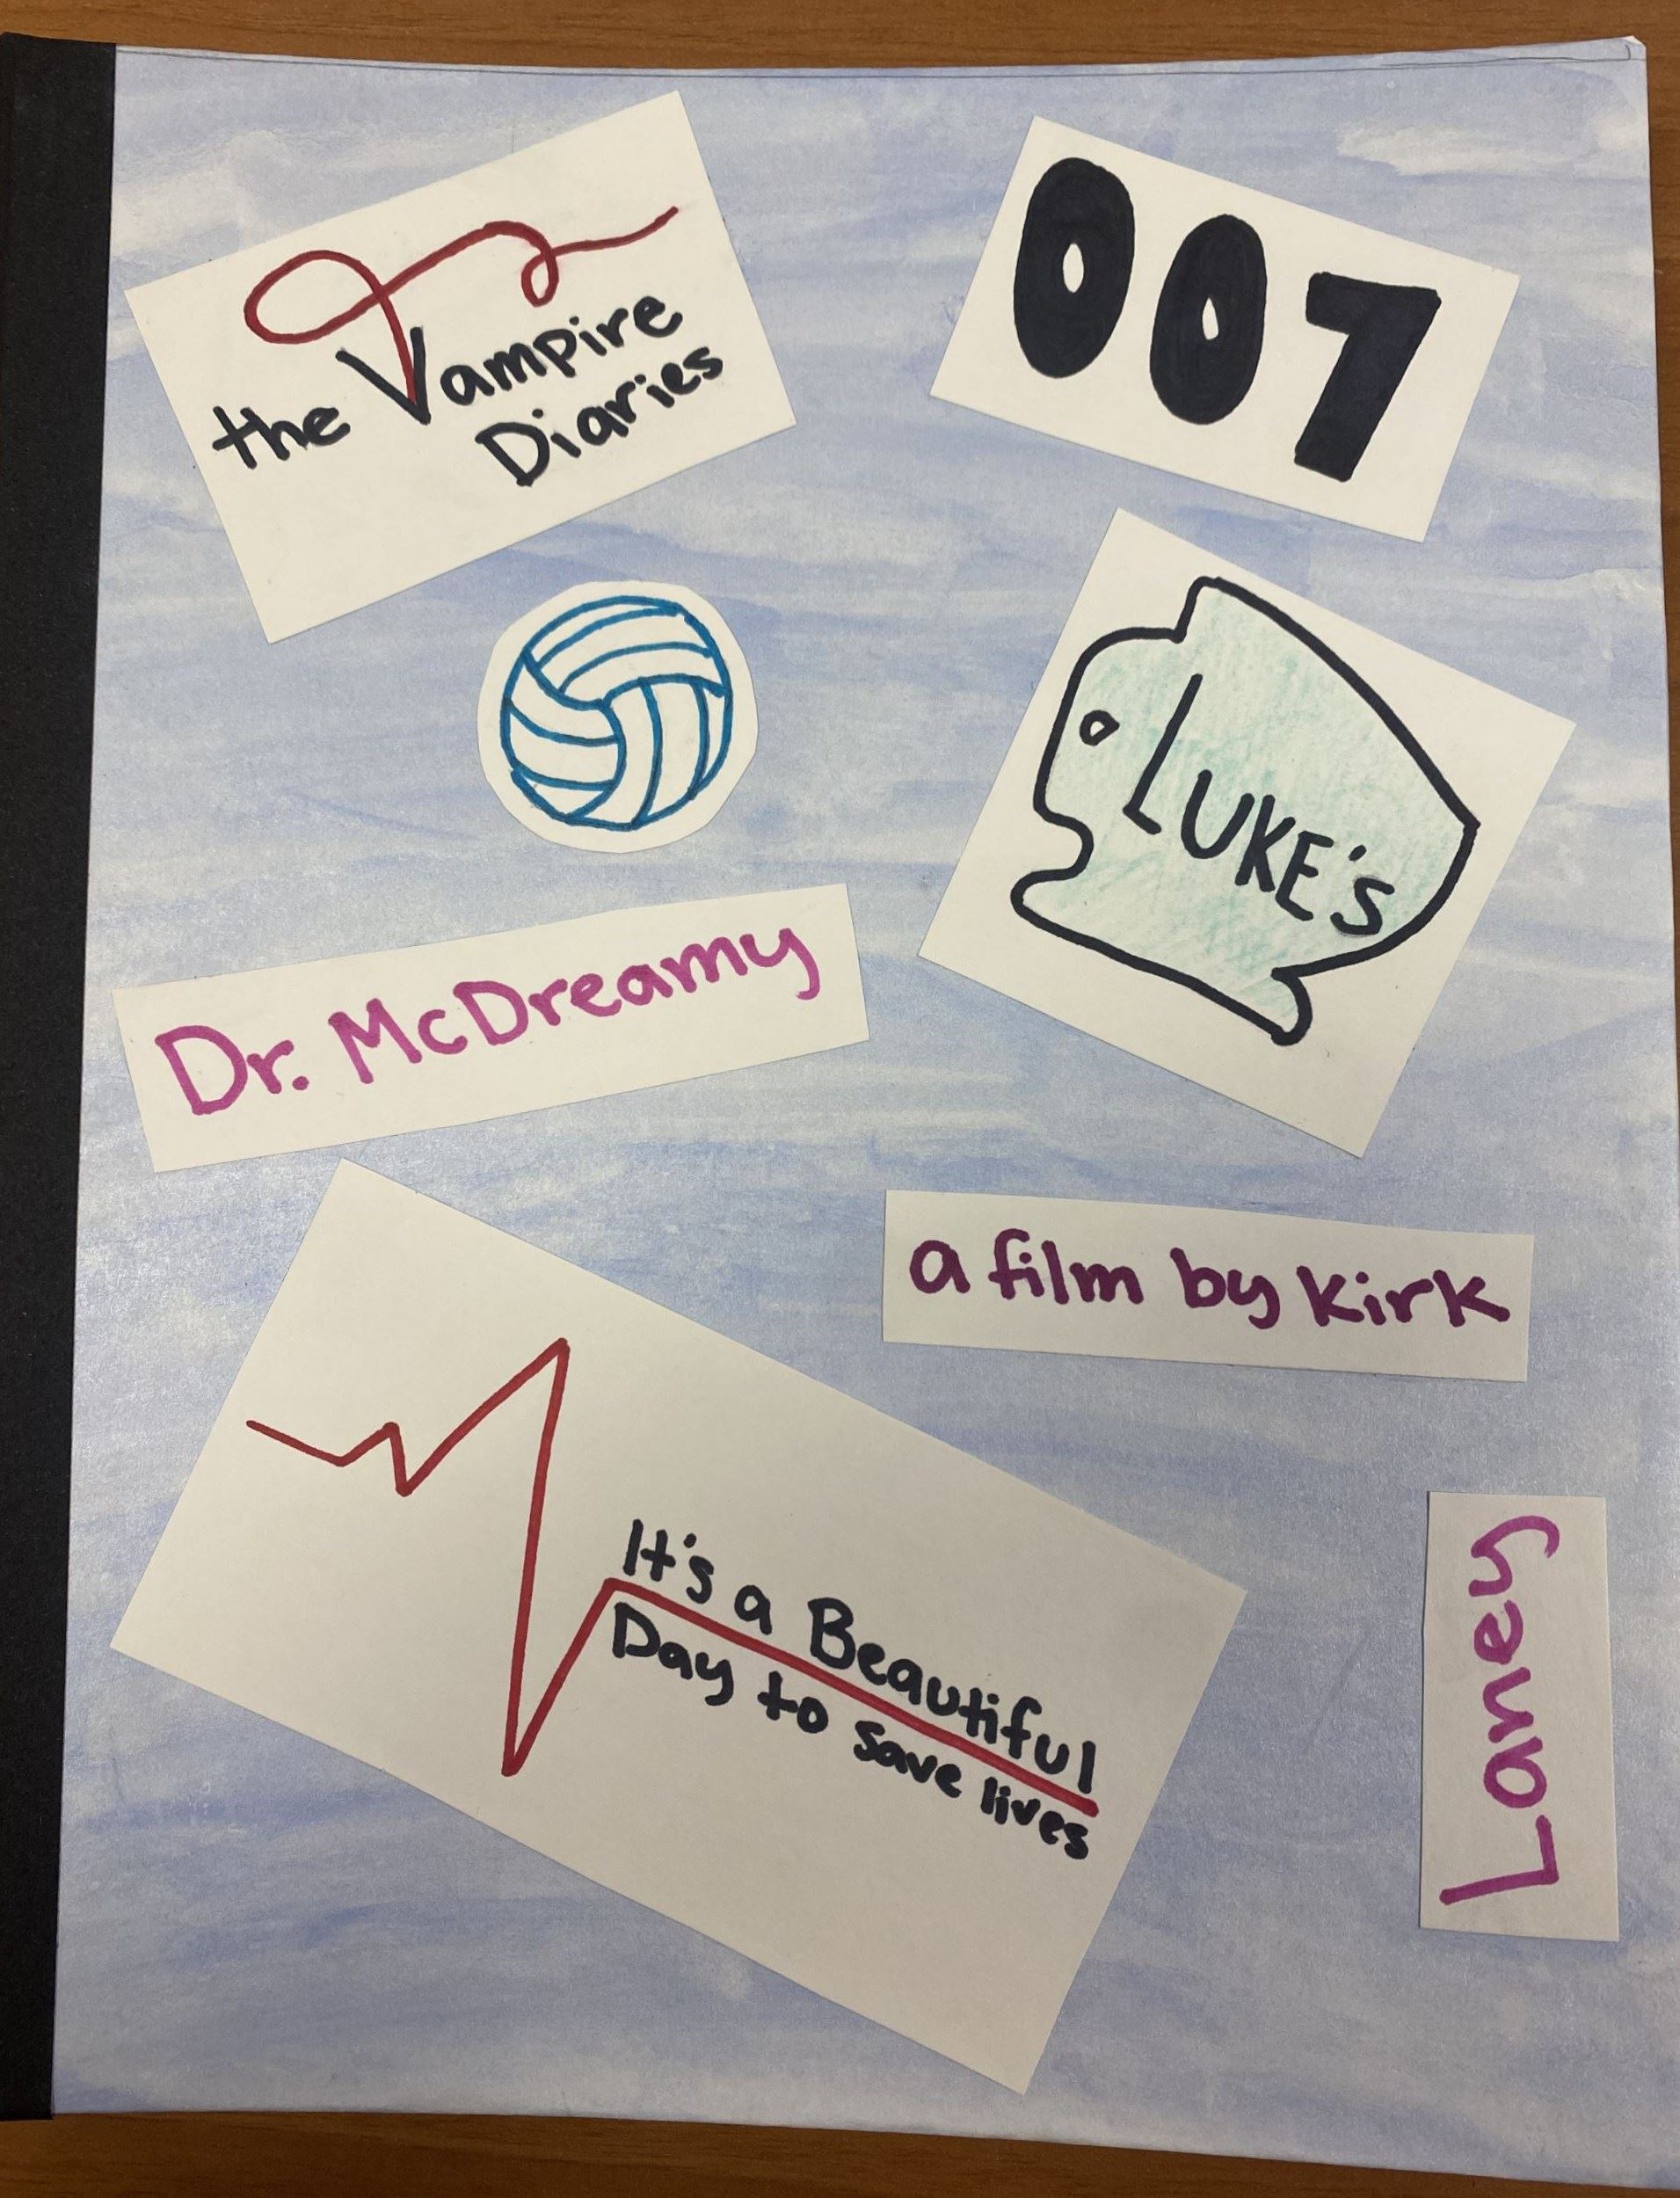 the Vampire
Diaries
007
LUKE's
Dr. McDreamy
a film by Kirk
It's a Beautiful
Day to save lives
Laney